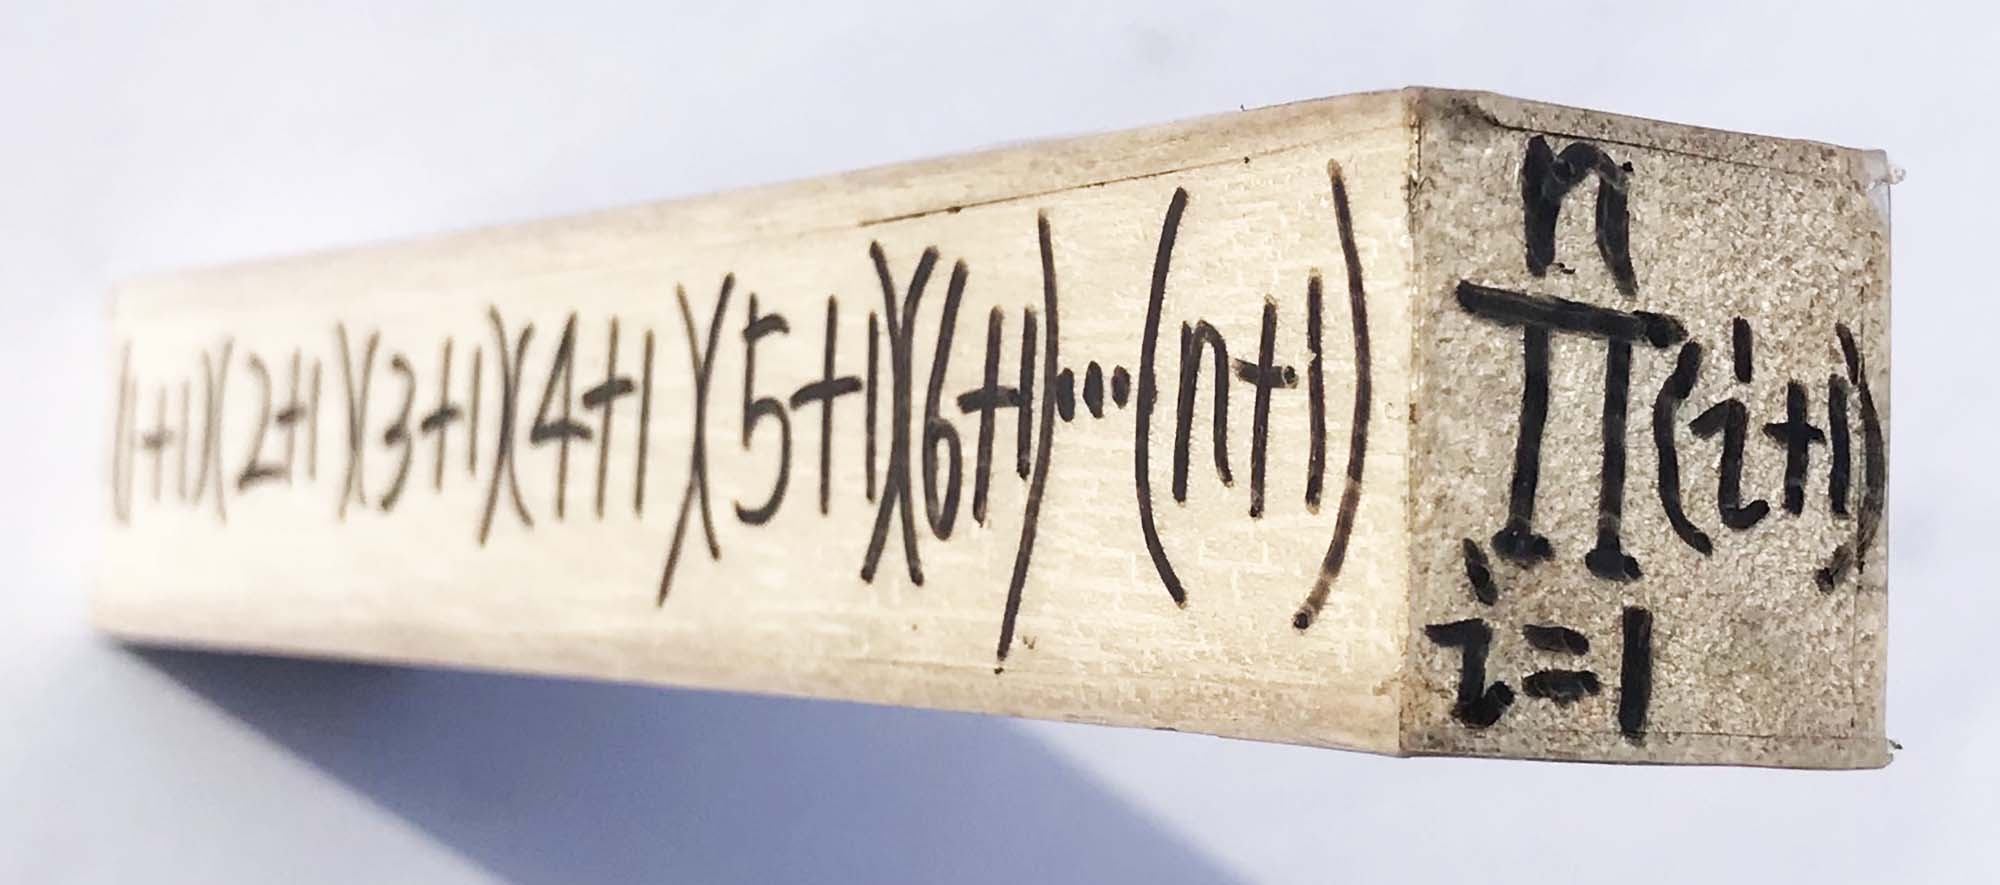 (1+1)(2+1)(3+1)(4+1)(5+1)(6+1)...(n+1)
n
∏(i+1)
i=1